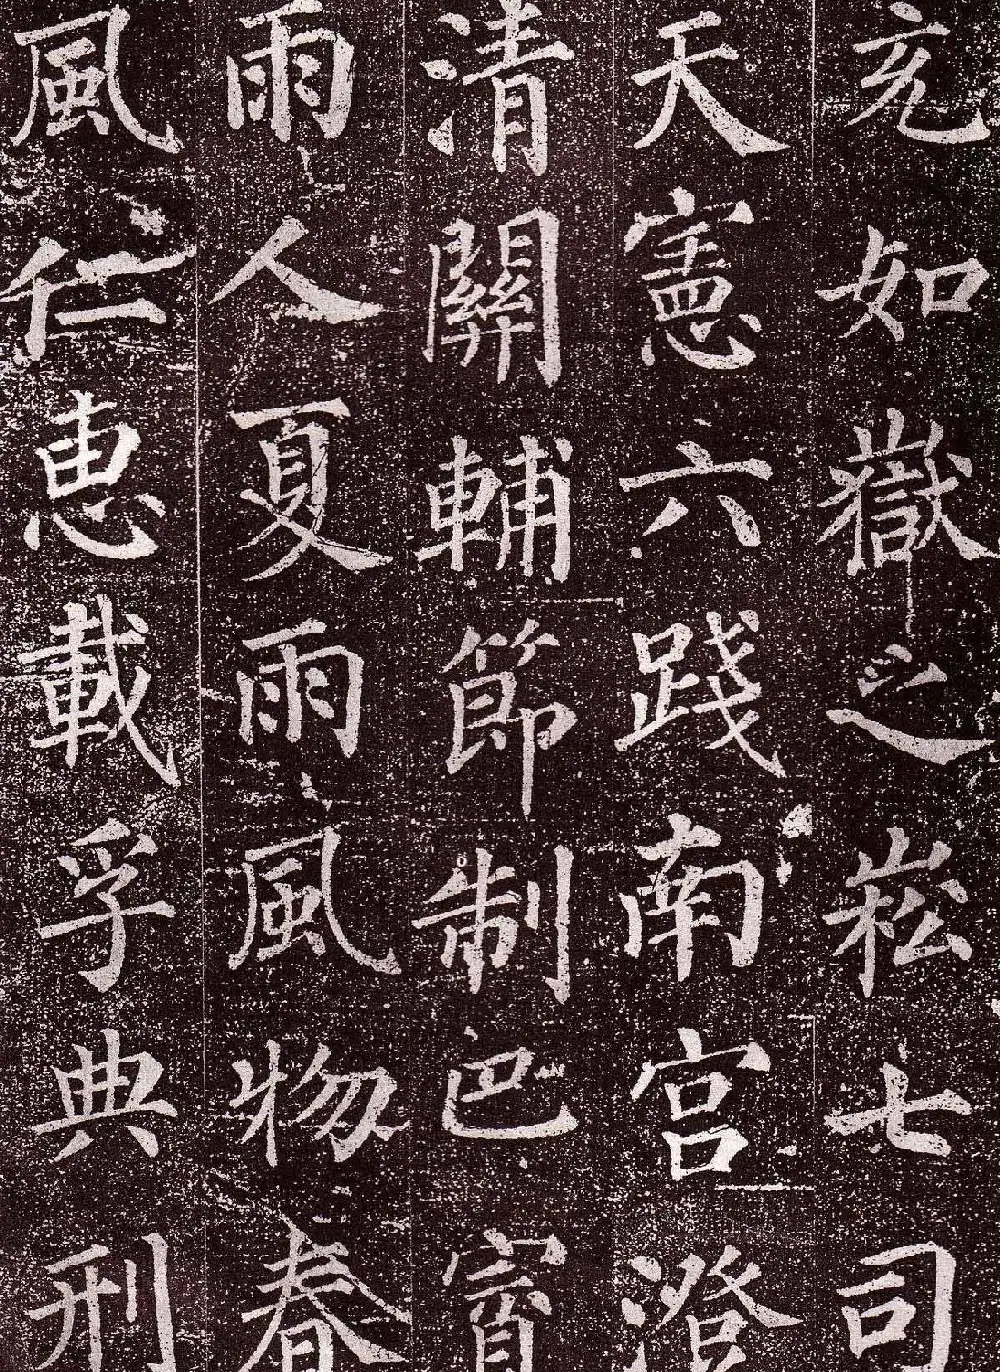 充如嶽之崧七司
天憲六踐南宮澄
清關輔節制巴賓
雨人夏雨風物春
風仁惠載孚典刑